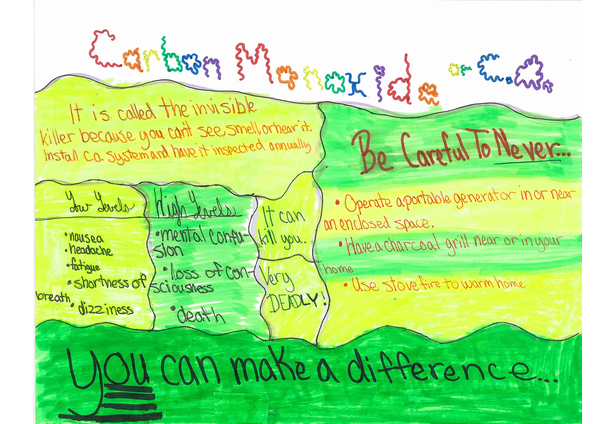 Carbon Monoxide or C.O.
It is called the invisible
killer because you can't see, smell, or hear it.
Install C.O. System and have it inspected annually
Be Careful To Never...
• Operate a portable generator in or near
an enclosed space.
• Have a charcoal grill near or in your
home
• Use stove fire to warm home
Low Levels
• nausea
• headache
• fatigue
• shortness of
breath
• dizziness
High Levels
• mental confu-
sion
• loss of con-
sciousness
• death
It can
kill you..
Very
DEADLY!
You can make a difference...